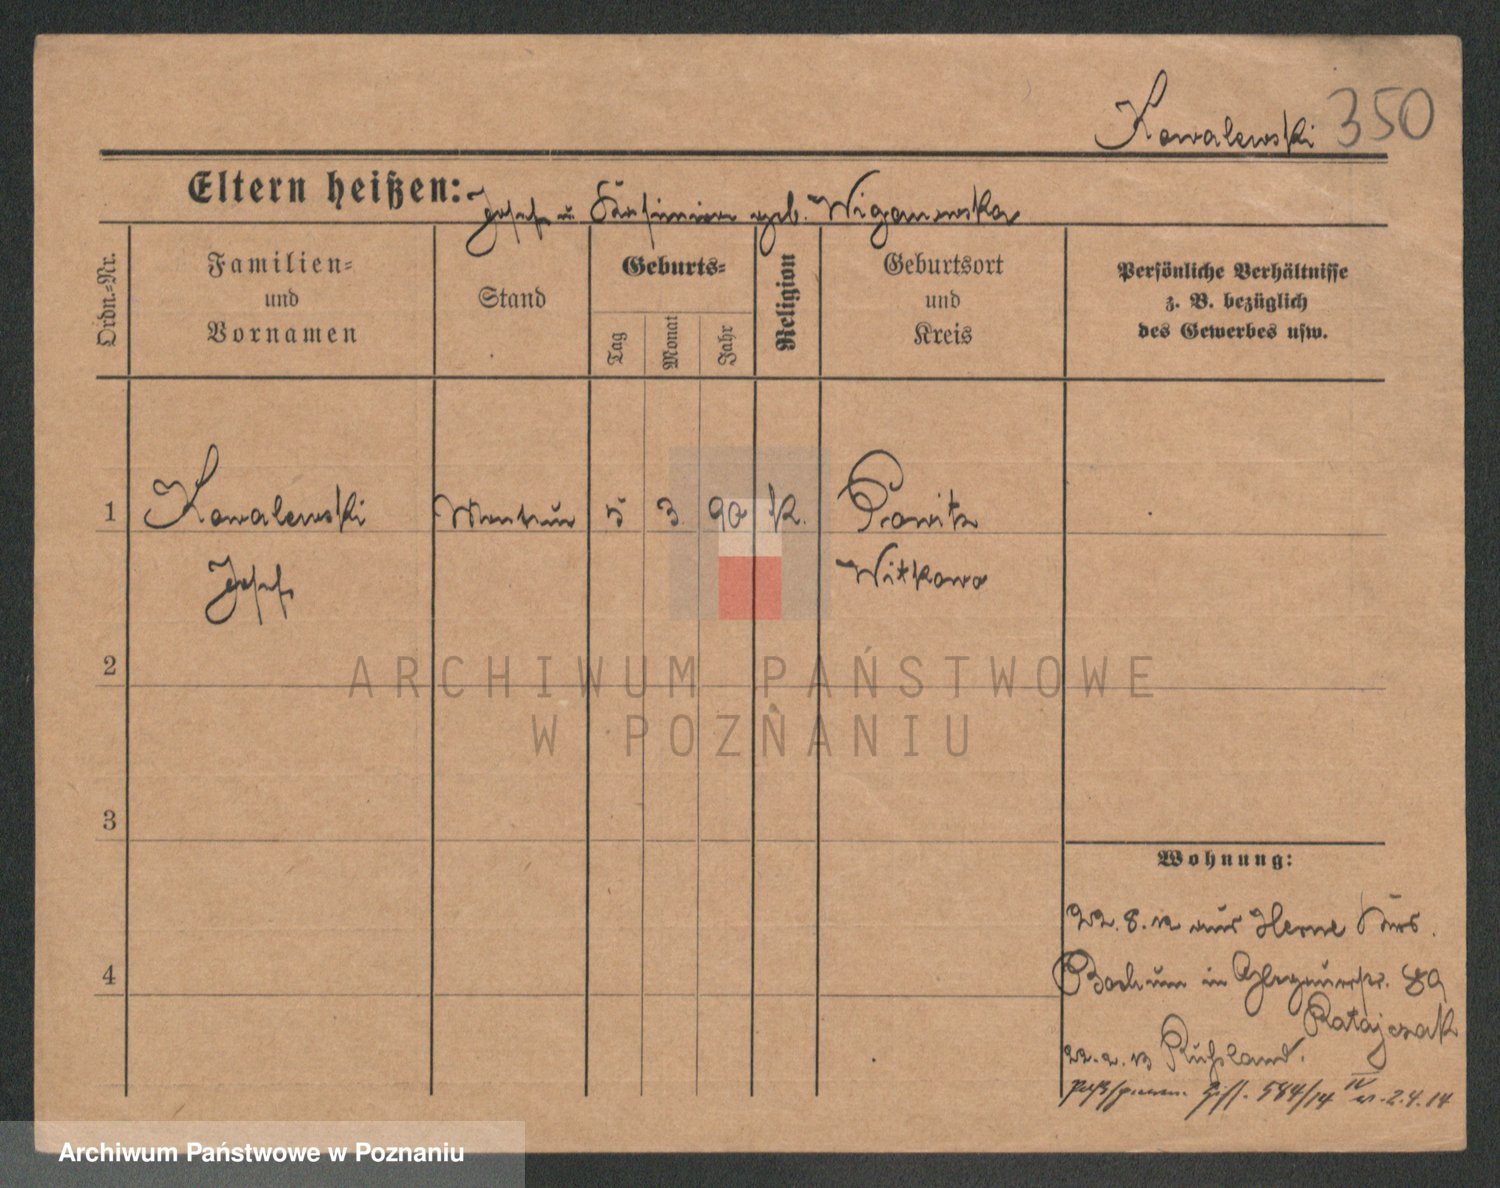 Kowalewski 350
Eltern heißen: Josef u. geb. Wiganowska
Ordn.-Nr.
Familien-
und
Vornamen
Stand
Geburts-
Tag
Monat
Jahr
Religion
Geburtsort
und
Kreis
Persönliche Verhältnisse
z. B. bezüglich
des Gewerbes usw.
1 Kowalewski 5 3. 90 K. Powitz
Josef Witkowo
2
ARCHIWUM PAŃSTWOWE
W POZNANIU
3
Wohnung:
22. 8. 12 aus Herne Krs.
4 Bochum in 89
Ratajczak
22. 2. 13 Rußland.
584/14 IV v. 2.4.14
Archiwum Państwowe w Poznaniu